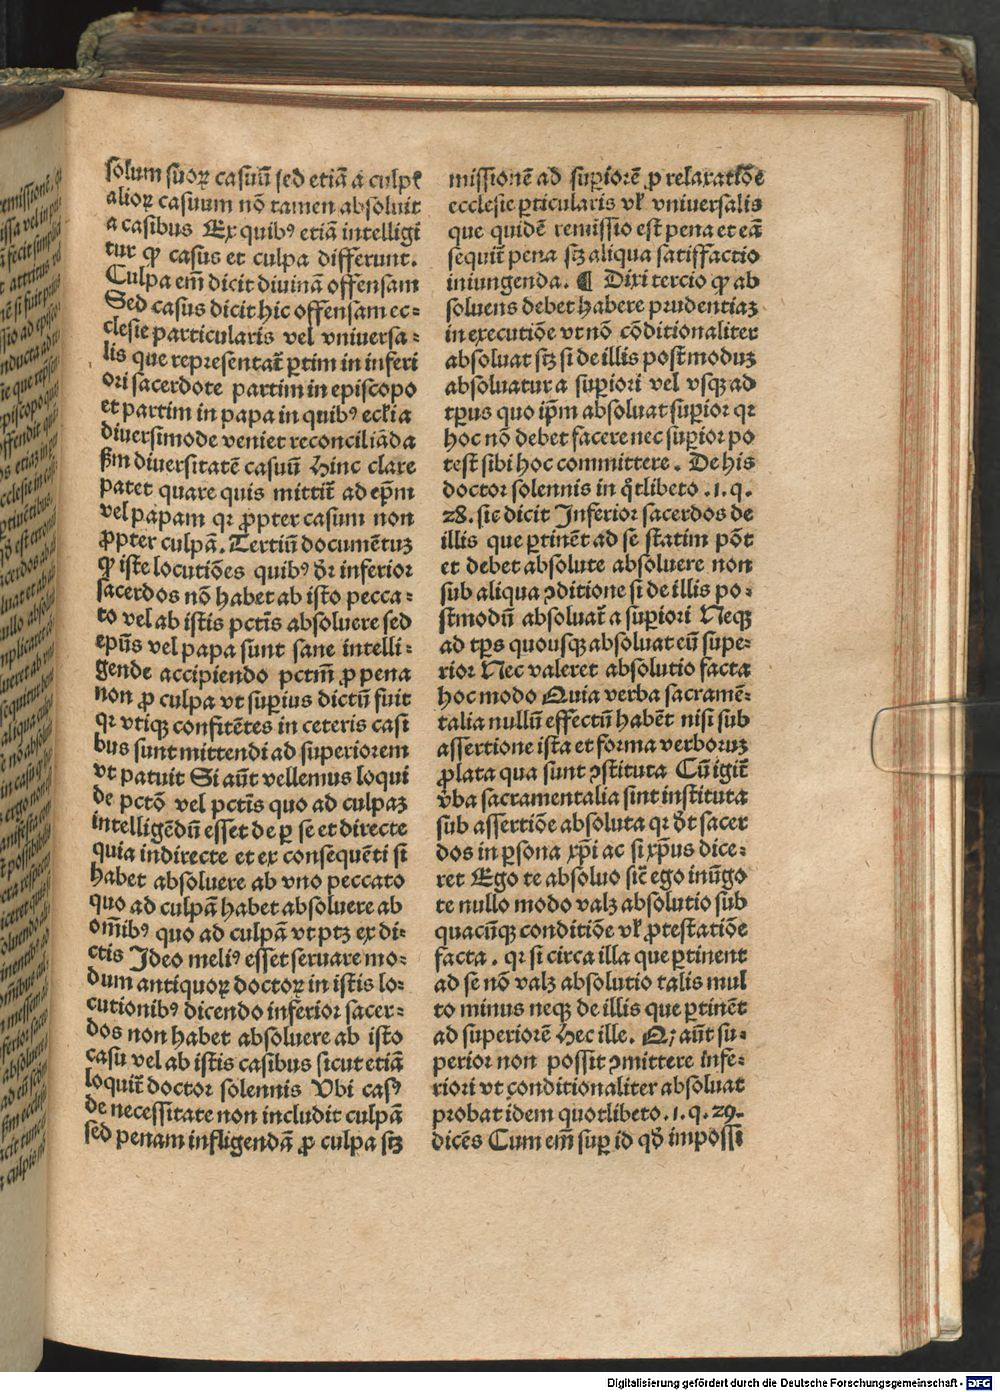 solum suoꝝ casuū sed etiā a culpꝭ
alioꝝ casuum nō tamen absoluit
a casibus Ex quibꝰ etiā intelligi
tur ꝙ casus et culpa differunt.
Culpa em̄ dicit diuinā offensam
Sed casus dicit hic offensam ec⸗
clesie particularis vel vniuersa⸗
lis que representat̄ ꝑtim in inferi
ori sacerdote partim in episcopo
et partim in papa in quibꝰ eccl̄ia
diuersimode veniet reconciliāda
ẜm diuersitatē casuū Hinc clare
patet quare quis mittit̄ ad ep̄m
vel papam qꝛ ꝓpter casum non
ꝓpter culpā. Tertiū documētuꝫ
ꝙ iste locutiōes quibꝰ dr̄ inferior
sacerdos nō habet ab isto pecca⸗
to vel ab istis pctīs absoluere sed
ep̄us vel papa sunt sane intelli⸗
gende accipiendo pctm̄ ꝓ pena
non ꝓ culpa vt superius dictū fuit
qꝛ vtiqꝫ confitētes in ceteris casi
bus sunt mittendi ad superiorem
vt patuit Si aūt vellemus loqui
de pctō vel pctīs quo ad culpaꝫ
intelligēdū esset de ꝑ se et directe
quia indirecte et ex consequēti si
habet absoluere ab vno peccato
quo ad culpā habet absoluere ab
om̄ibꝰ quo ad culpā vt ptꝫ ex di⸗
ctis Ideo meliꝰ esset seruare mo⸗
dum antiquoꝝ doctoꝝ in istis lo⸗
cutionibꝰ dicendo inferior sacer⸗
dos non habet absoluere ab isto
casu vel ab istis casibus sicut etiā
loquit̄ doctor solennis Vbi casꝰ
de necessitate non includit culpā
sed penam infligendā ꝓ culpa sꝫ
missionē ad suꝑiorē ꝓ relaxatiōe
ecclesie ꝑticularis vl̄ vniuersalis
que quidē remissio est pena et eā
sequit̄ pena sꝫ aliqua satisfactio
iniungenda. ¶ Dixi tercio ꝙ ab
soluens debet habere prudentiaꝫ
in executiōe vt nō cōditionaliter
absoluat sꝫ si de illis post̄moduꝫ
absoluatur a suꝑiori vel vsqꝫ ad
tꝑus quo ip̄m absoluat suꝑior qꝛ
hoc nō debet facere nec suꝑior po
test sibi hoc committere. De his
doctor solennis in q̄tlibeto .1.q.
28. sic dicit Inferior sacerdos de
illis que ꝑtinēt ad se statim pōt
et debet absolute absoluere non
sub aliqua ꝯditione si de illis po⸗
stmodū absoluat̄ a suꝑiori Neqꝫ
ad tꝑs quousqꝫ absoluat eū supe⸗
rior Nec valeret absolutio facta
hoc modo Quia verba sacramē⸗
talia nullū effectū habēt nisi sub
assertione ista et forma verboruꝫ
ꝓlata qua sunt ꝯstituta Cū igit̄
v̄ba sacramentalia sint instituta
sub assertiōe absoluta qꝛ dt̄ sacer
dos in ꝑsona xp̄i ac si xp̄us dice⸗
ret Ego te absoluo sic̄ ego inūgo
te nullo modo valꝫ absolutio sub
quacūqꝫ conditiōe vl̄ ꝓtestatiōe
facta . qꝛ si circa illa que ꝑtinent
ad se nō valꝫ absolutio talis mul
to minus neqꝫ de illis que ꝑtinēt
ad superiorē Hec ille. Qꝫ aūt su⸗
perior non possit ꝯmittere infe⸗
riori vt conditionaliter absoluat
probat idem quotlibeto .1.q.29.
dicēs Cum em̄ suꝑ id qd̄ impossi
Digitalisierung gefördert durch die Deutsche Forschungsgemeinschaft - DFG